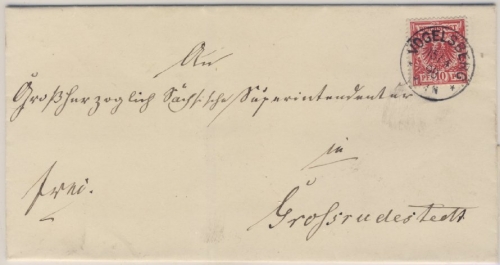 VOGELSBERG
10
An
Großherzoglich Sächsische Superintendentur
in
frei.
Grossrudestedt